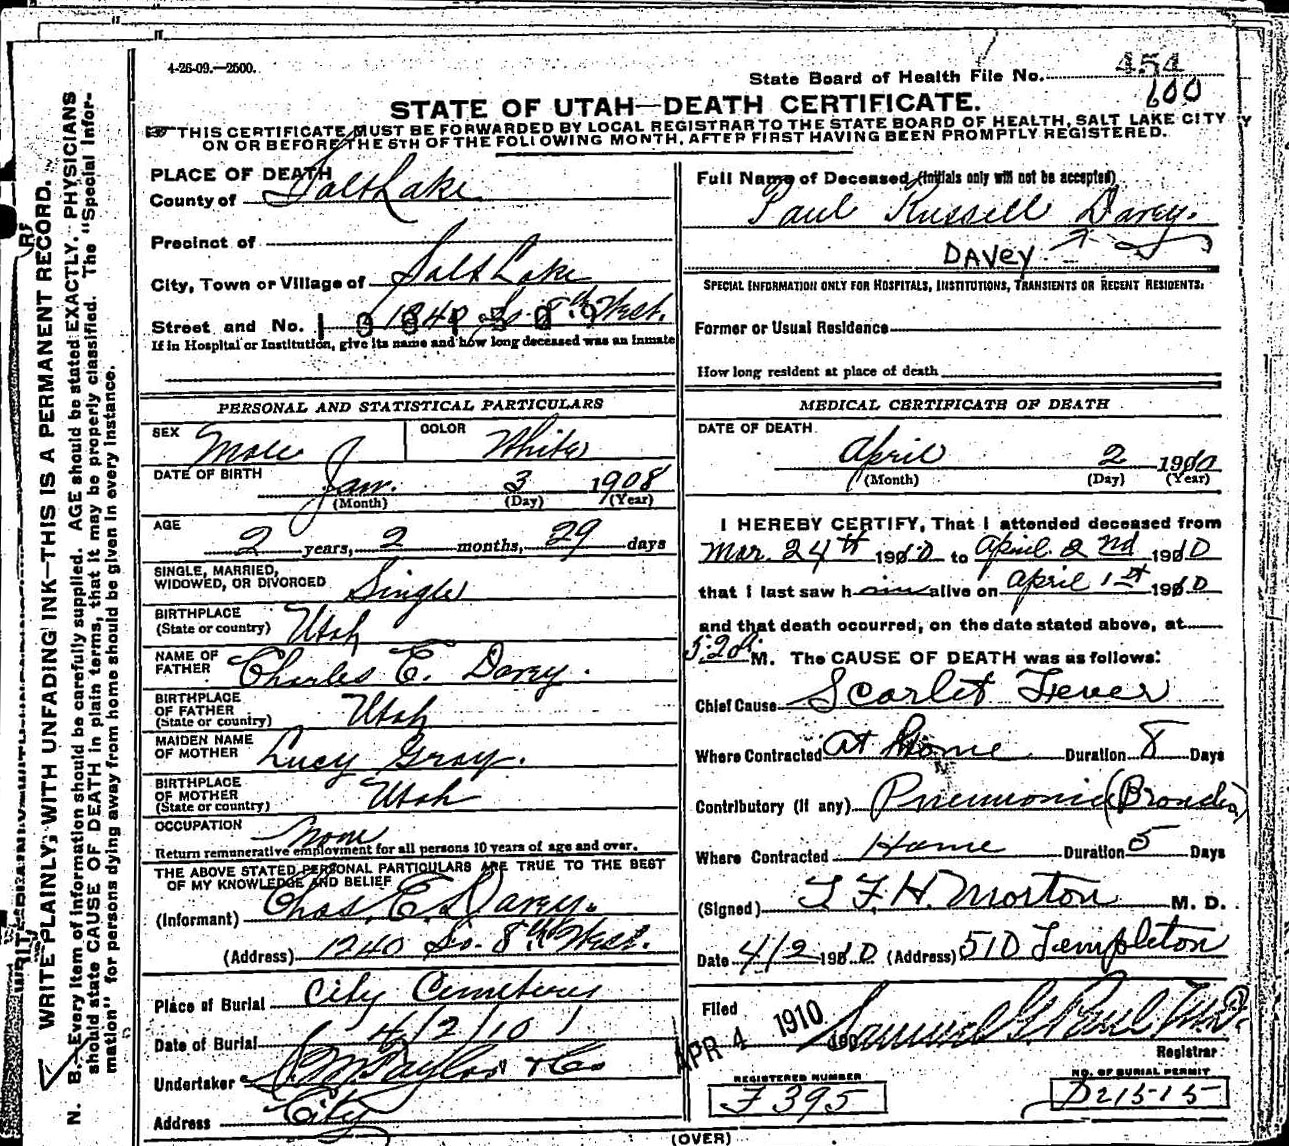 4-26-09.—2500.
State Board of Health File No. 454
600
STATE OF UTAH—DEATH CERTIFICATE.
THIS CERTIFICATE MUST BE FORWARDED BY LOCAL REGISTRAR TO THE STATE BOARD OF HEALTH, SALT LAKE CITY
ON OR BEFORE THE 5TH OF THE FOLLOWING MONTH, AFTER FIRST HAVING BEEN PROMPTLY REGISTERED.
PLACE OF DEATH
County of Salt Lake
Precinct of
City, Town or Village of Salt Lake
Street and No. 1240 So. 8th West.
If in Hospital or Institution, give its name and how long deceased was an inmate
Full Name of Deceased (Initials only will not be accepted)
Paul Russell Davey.
DAVEY
SPECIAL INFORMATION ONLY FOR HOSPITALS, INSTITUTIONS, TRANSIENTS OR RECENT RESIDENTS:
Former or Usual Residence
How long resident at place of death
PERSONAL AND STATISTICAL PARTICULARS
SEX Male
COLOR White
DATE OF BIRTH Jan. 3 1908
(Month) (Day) (Year)
AGE
2 years, 2 months, 29 days
SINGLE, MARRIED,
WIDOWED, OR DIVORCED Single
BIRTHPLACE
(State or country) Utah
NAME OF
FATHER Charles E. Davey.
BIRTHPLACE
OF FATHER
(State or country) Utah
MAIDEN NAME
OF MOTHER Lucy Gray.
BIRTHPLACE
OF MOTHER
(State or country) Utah
OCCUPATION None
Return remunerative employment for all persons 10 years of age and over.
THE ABOVE STATED PERSONAL PARTICULARS ARE TRUE TO THE BEST
OF MY KNOWLEDGE AND BELIEF
(Informant) Chas. E. Davey.
(Address) 1240 So. 8th West.
Place of Burial City Cemetery
Date of Burial 4/2/10
Undertaker S. M. Taylor & Co
Address City
MEDICAL CERTIFICATE OF DEATH
DATE OF DEATH
April 2 1910
(Month) (Day) (Year)
I HEREBY CERTIFY, That I attended deceased from
Mar. 24th 1910 to April 2nd 1910
that I last saw him alive on April 1st 1910
and that death occurred, on the date stated above, at
M. The CAUSE OF DEATH was as follows:
Chief Cause Scarlet Fever
Where Contracted at home Duration 8 Days
Contributory (if any) Pneumonia
Where Contracted Home Duration 5 Days
(Signed) T. F. H. Morton M. D.
Date 4/2 1910 (Address) 510 Templeton
Filed APR 4 1910 190 Samuel G. Paul M.D.
Registrar
REGISTERED NUMBER
F 395
NO. OF BURIAL PERMIT
D21515
(OVER)
WRITE PLAINLY, WITH UNFADING INK—THIS IS A PERMANENT RECORD.
N. B.—Every item of information should be carefully supplied. AGE should be stated EXACTLY. PHYSICIANS
should state CAUSE OF DEATH in plain terms, that it may be properly classified. The "Special Infor-
mation" for persons dying away from home should be given in every instance.